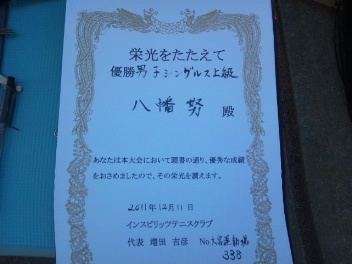 栄光をたたえて
優勝男子シングルス上級
八幡 努 殿
あなたは本大会において頭書の通り、優秀な成績
をおさめましたので、その栄光を讃えます。
2011年12月11日
インスピリッツテニスクラブ
代表 増田 吉彦 No
333